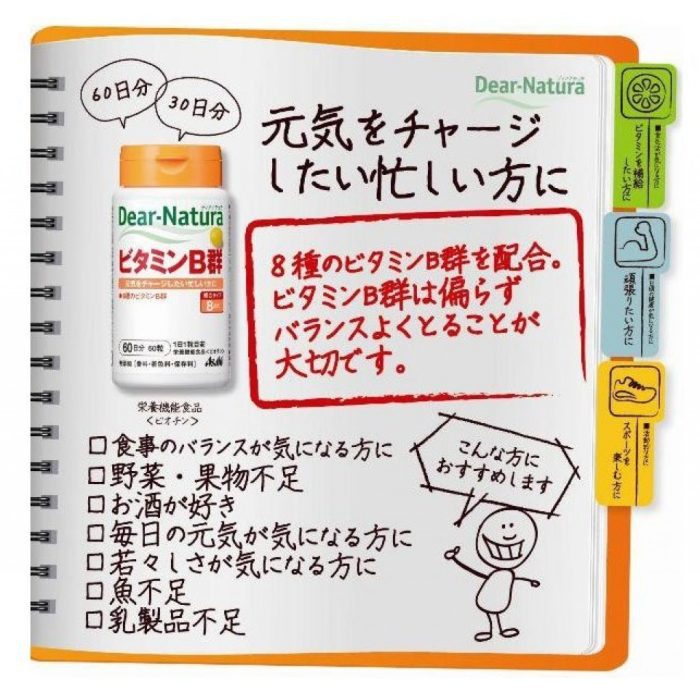 60日分
30日分
Dear-Natura
元気をチャージ
したい忙しい方に
Dear-Natura
ビタミンB群
元気をチャージしたい忙しい方に
8種のビタミンB群
60日分 60粒
1日1粒目安
栄養機能食品<ビオチン>
無添加【香料・着色料・保存料】
Asahi
栄養機能食品
<ビオチン>
8種のビタミンB群を配合。
ビタミンB群は偏らず
バランスよくとることが
大切です。
□食事のバランスが気になる方に
□野菜・果物不足
□お酒が好き
□毎日の元気が気になる方に
□若々しさが気になる方に
□魚不足
□乳製品不足
こんな方に
おすすめします
ビタミンを補給
したい方に
頑張りたい方に
スポーツを
楽しむ方に